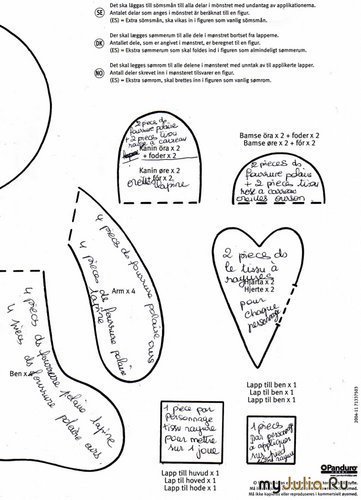 SE
Det ska läggas till sömsmån till alla delar i mönstret med undantag av applikationerna.
Antalet delar som anges i mönstret är beräknat till en figur.
(ES) = Extra sömsmån, ska vikas in i figuren som vanlig sömsmån.
DK
Der skal lægges sømmerum til alle dele i mønstret bortset fra lapperne.
Antallet dele, som er angivet i mønstret, er beregnet til en figur.
(ES) = Ekstra sømmerum som skal foldes ind i figuren som almindeligt sømmerum.
NO
Det skal legges sømrom til alle delene i mønsteret med unntak av til applikerte lapper.
Antall deler skrevet inn i mønsteret tilsvarer en figur.
(ES) = Ekstra sømrom, skal brettes inn i figuren som vanlig sømrom.
2 pieces de
fourrure polaire
+ 2 pieces tissu
rose a carreau
Kanin öra x 2
+ foder x 2
Kanin øre x 2
fór x 2
oreilles lapine
Bamse öra x 2 + foder x 2
Bamse øre x 2 + fór x 2
2 pieces de
fourrure polaire
+ 2 pieces tissu
rose a carreau
oreilles ourson
4 pieces de fourrure polaire ours
4 pieces de fourrure polaire lapine
Arm x 4
2 pieces ds
le tissu à
rayures
Hjärta x 2
Hjerte x 2
pour
chaque
personnage
4 pieces de fourrure polaire lapine
Ben x 4
4 pieces de fourrure polaire ours
1 piece par
personnage
tissu rayure
pour mettre
sur 1 joue
Lapp till huvud x 1
Lap til hoved x 1
Lapp til hode x 1
Lapp till ben x 1
Lap til ben x 1
Lapp til ben x 1
1 pieces
par personnage
a appliquer
sur
2004-11 71537503
Panduro
Må ikke kopieras eller reproduceras i kommersiellt syfte.
myJulia.Ru